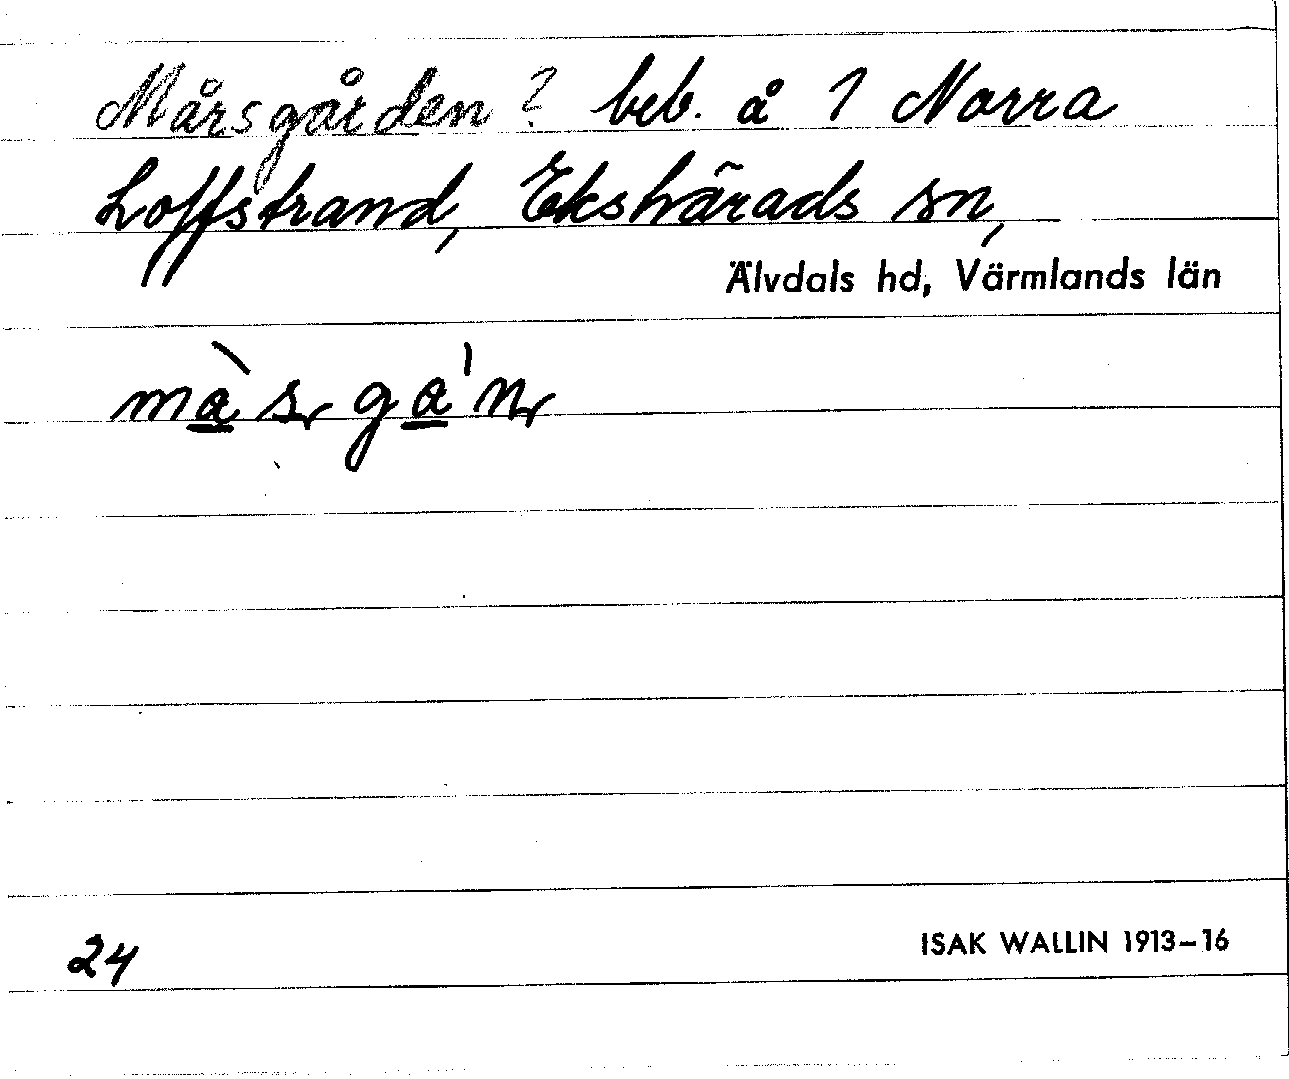 Mårsgården? beb. å 1 Norra
Loffstrand, Ekshärads sn,
Älvdals hd, Värmlands län
mà̲ sr ga̲ˈnr
24
ISAK WALLIN 1913–16